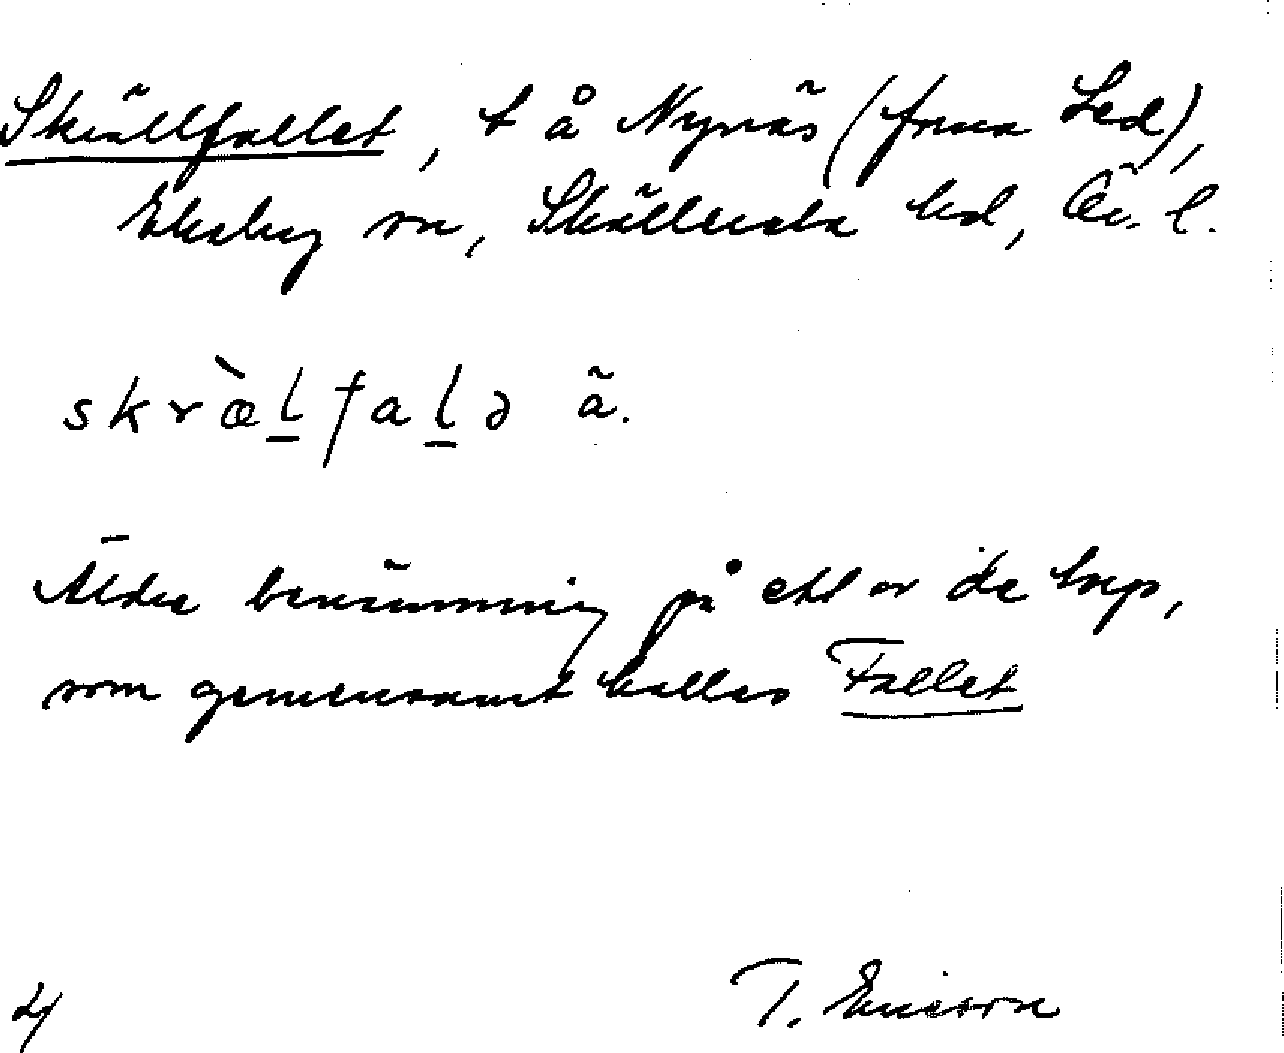 Skrällfallet, t å Nynäs (förra Led),
Ekeby sn, Skyllersta hd, Ör. l.
skræ̀lfalə ã.
Äldre benämning på ett av de torp,
som gemensamt kallas Fallet
T. Ericson
4